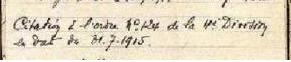 Citation à l'ordre N° 124 de la 11e Division
en dat du 31.7-1915.